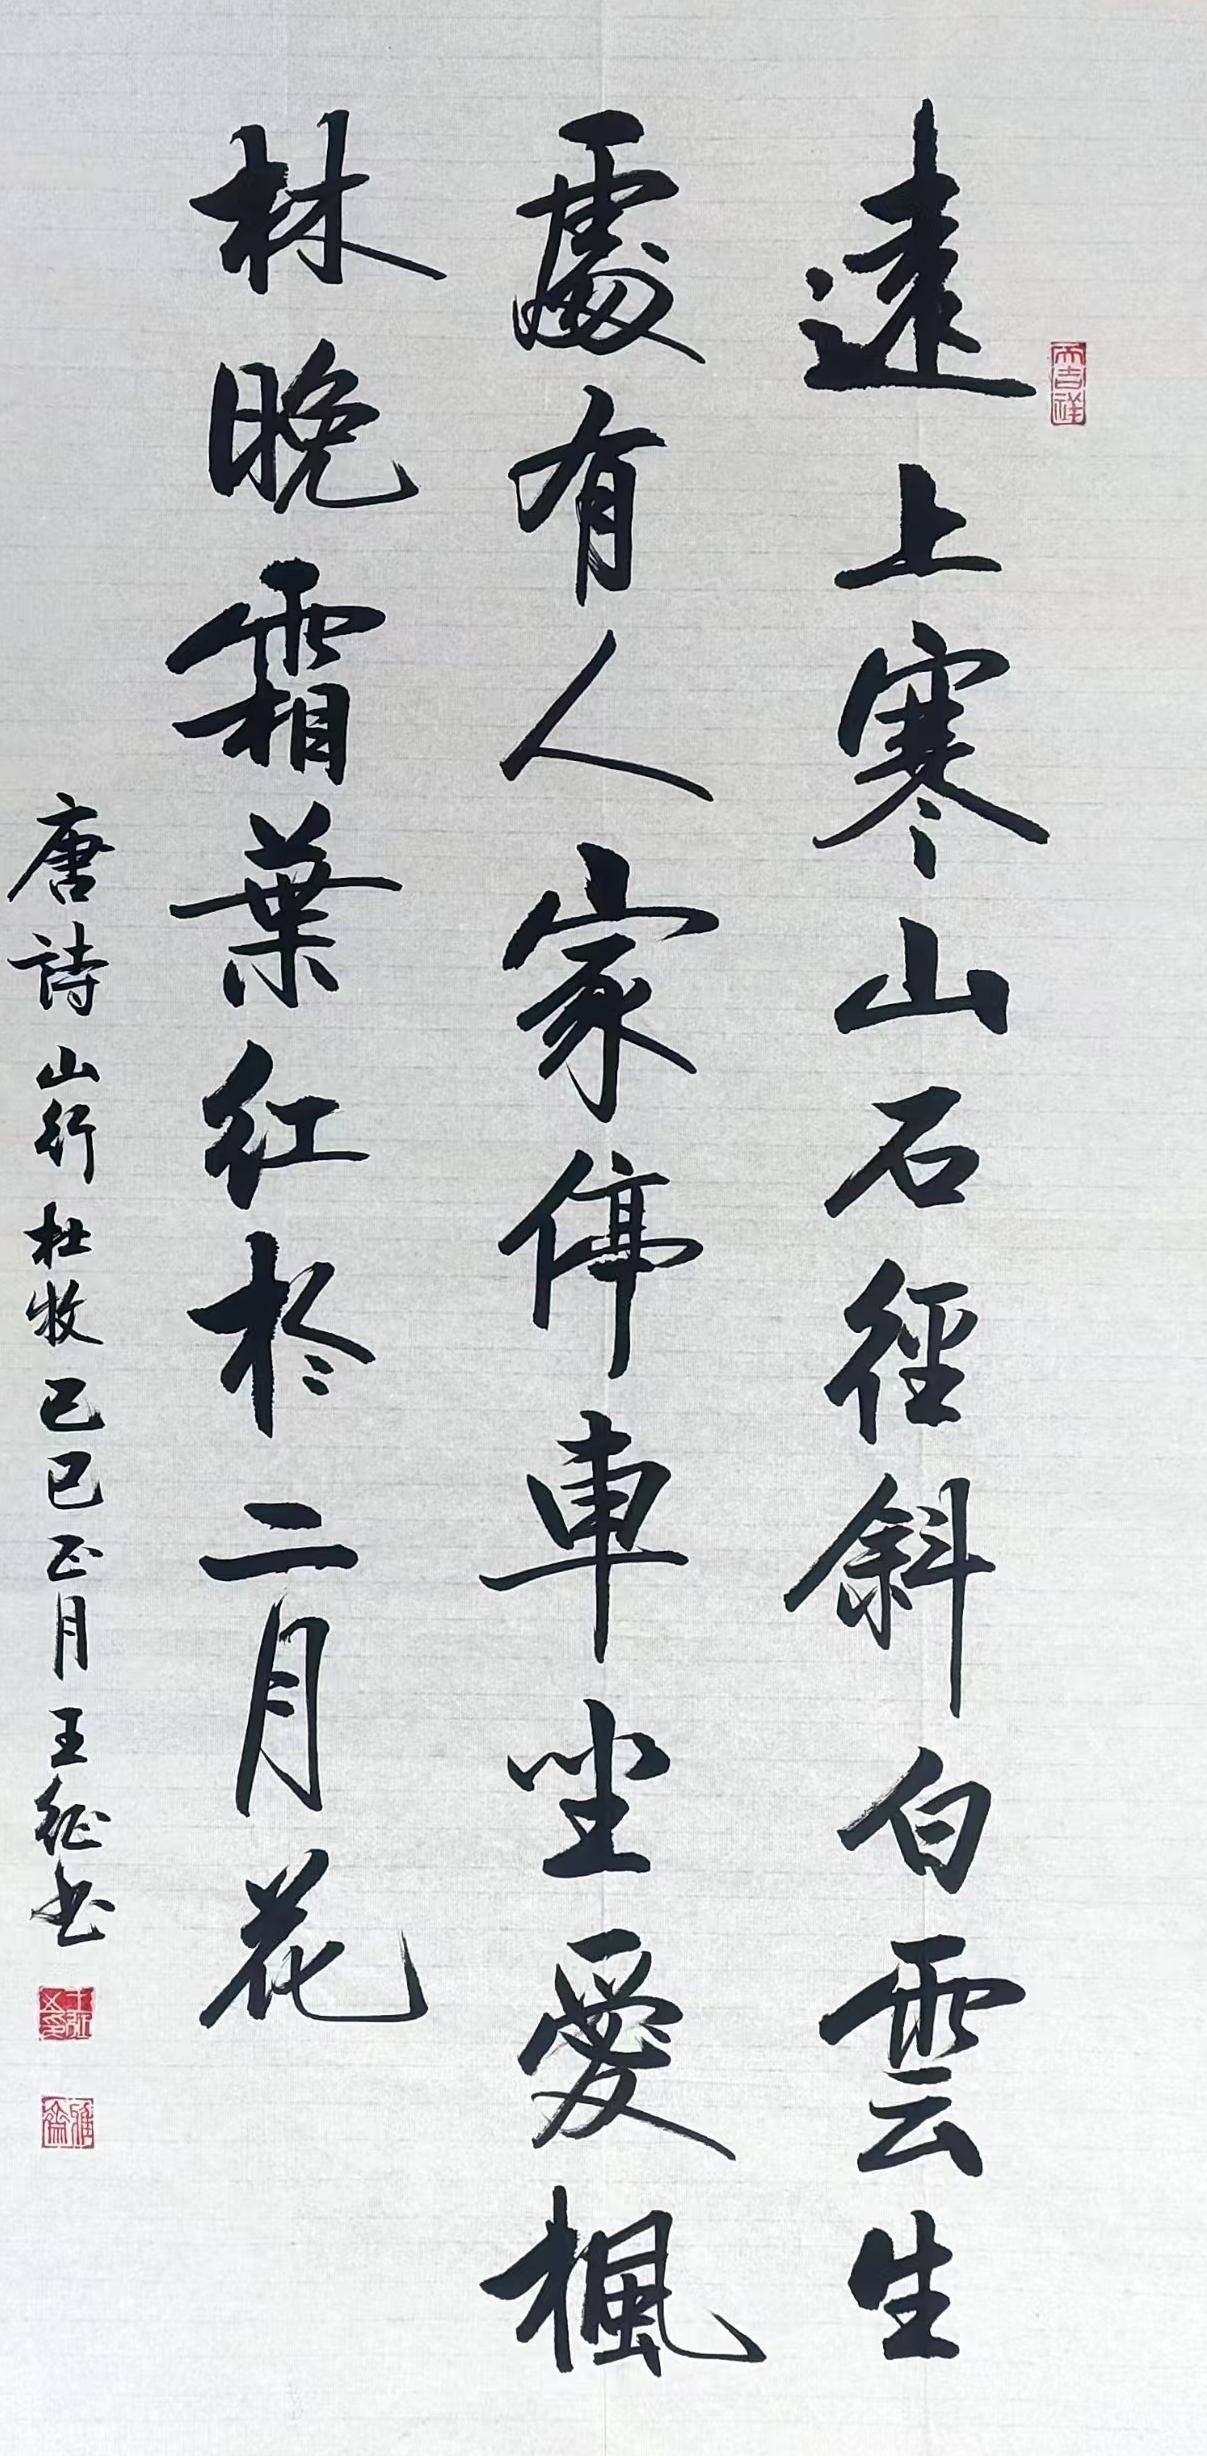 遠上寒山石徑斜白雲生
處有人家停車坐愛楓
林晚霜葉红於二月花
唐詩山行杜牧己巳正月王征书
大吉祥